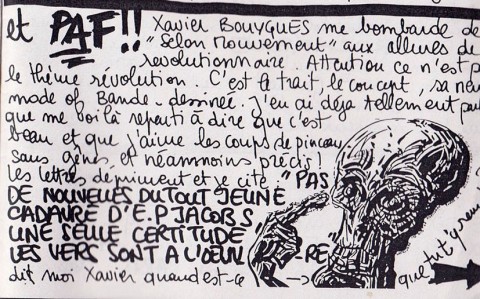 et PAF!! Xavier BOUYGUES me bombarde de
"Selon Mouvement" aux allures de
revolutionnaire. Attention ce n'est p
le thème révolution. C'est le trait, le concept, sa neu
mode of Bande-dessinée. J'en ai déja tellement pa
que me voilà reparti à dire que c'est
beau et que j'aime les coups de pinceau
sans gênes, et néammoins précis!
Les lettres dépriment et je cite: "PAS
DE NOUVELLES DU TOUT JEUNE
CADAVRE D'E.P JACOBS
UNE SEULE CERTITUDE
LES VERS SONT A L'OEUV-RE
dit moi Xavier quand est-ce
que tu t'y